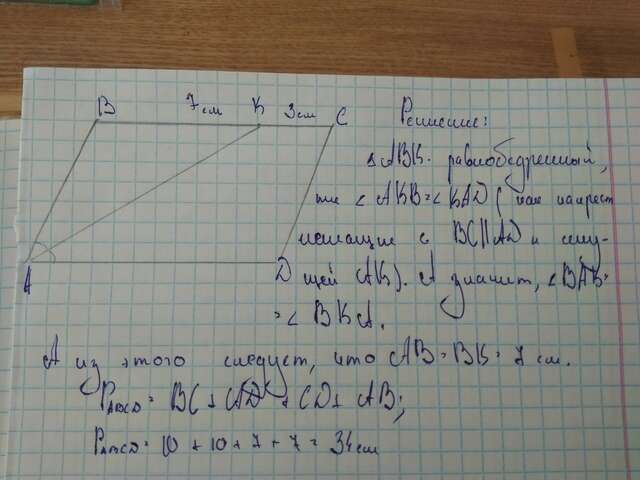 B 7см K 3см C
A D
Решение:
△ABK- равнобедренный,
тк ∠AKB=∠KAD (как накрест
лежащие с BC||AD и секу-
щей AK). А значит, ∠BAK=
=∠BKA.
А из этого следует, что AB=BK=7 см.
PABCD= BC+AD+CD+AB;
PABCD=10+10+7+7=34см